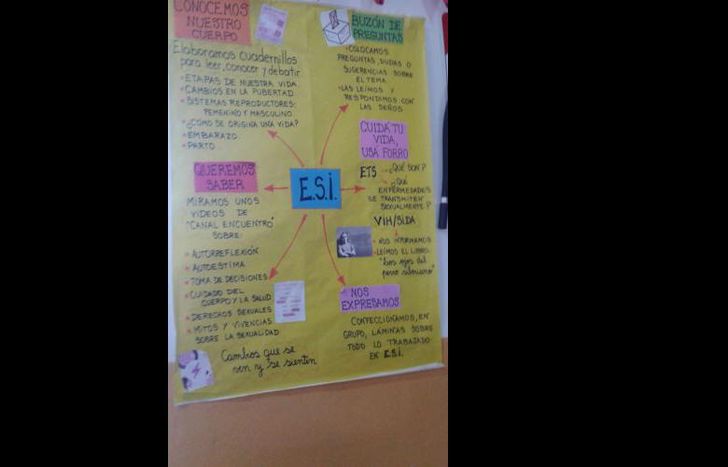 CONOCEMOS
NUESTRO
CUERPO
Elaboramos cuadernillos
para leer, conocer y debatir.
• ETAPAS DE NUESTRA VIDA.
• CAMBIOS EN LA PUBERTAD.
• SISTEMAS REPRODUCTORES:
FEMENINO Y MASCULINO.
• ¿CÓMO SE ORIGINA UNA VIDA?
• EMBARAZO.
• PARTO.
BUZÓN DE
PREGUNTAS
• COLOCAMOS
PREGUNTAS, DUDAS O
SUGERENCIAS SOBRE
EL TEMA.
• LAS LEÍMOS Y
RESPONDIMOS CON
LAS SEÑOS
QUEREMOS
SABER
MIRAMOS UNOS
VIDEOS DE
"CANAL ENCUENTRO"
SOBRE:
• AUTORREFLEXIÓN
• AUTOESTIMA
• TOMA DE DECISIONES
• CUIDADO DEL
CUERPO Y LA SALUD
• DERECHOS SEXUALES
• MITOS Y VIVENCIAS
SOBRE LA SEXUALIDAD
Cambios que se
ven y se sienten
E.S.I.
CUIDÁ TU
VIDA,
USÁ FORRO
ETS
¿QUÉ SON?
¿QUÉ
ENFERMEDADES
SE TRANSMITEN
SEXUALMENTE?
VIH/SIDA
• NOS INFORMAMOS
• LEÍMOS EL LIBRO:
"Los ojos del
perro siberiano"
• NOS
EXPRESAMOS
CONFECCIONAMOS, EN
GRUPO, LÁMINAS SOBRE
TODO LO TRABAJADO
EN E.S.I.